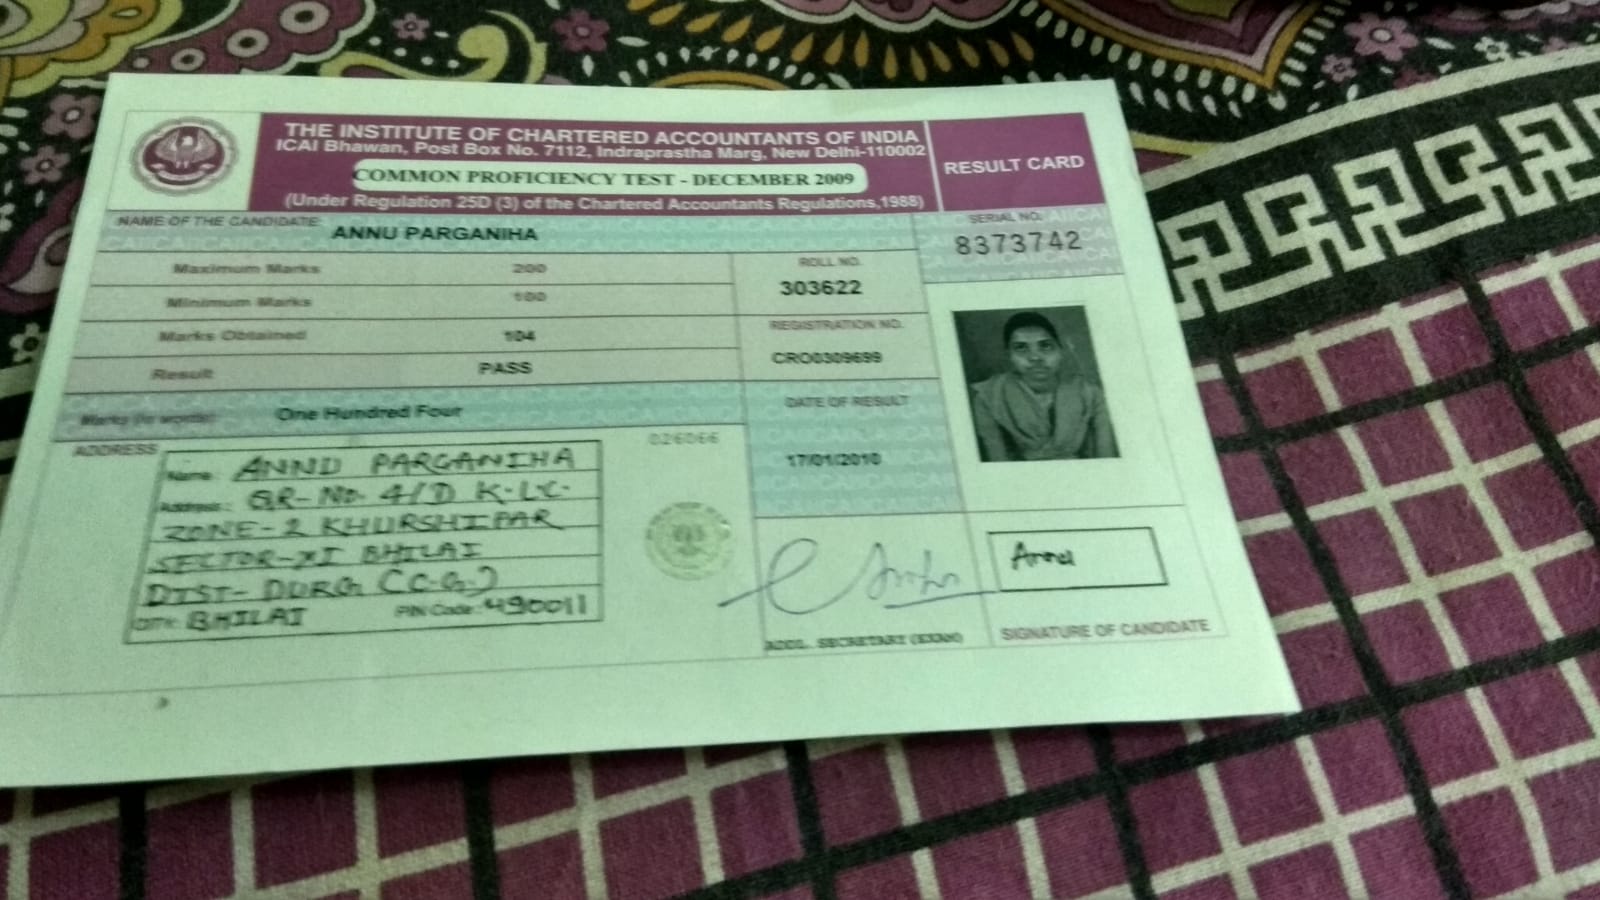 THE INSTITUTE OF CHARTERED ACCOUNTANTS OF INDIA
ICAI Bhawan, Post Box No. 7112, Indraprastha Marg, New Delhi-110002
COMMON PROFICIENCY TEST - DECEMBER 2009
(Under Regulation 25D (3) of the Chartered Accountants Regulations,1988)
RESULT CARD
NAME OF THE CANDIDATE:
ANNU PARGANIHA
SERIAL NO.
8373742
Maximum Marks 200
Minimum Marks 100
Marks Obtained 104
Result PASS
Marks (in words): One Hundred Four
ROLL NO.
303622
REGISTRATION NO.
CRO0309699
DATE OF RESULT
17/01/2010
ADDRESS
Name: ANNU PARGANIHA
Address: QR-No. 4/D K.L.C.
ZONE-2 KHURSHIPAR
SECTOR-XI BHILAI
DIST- DURG (C.G.)
CITY: BHILAI PIN Code: 490011
026066
ADDL. SECRETARY (EXAM)
Annu
SIGNATURE OF CANDIDATE